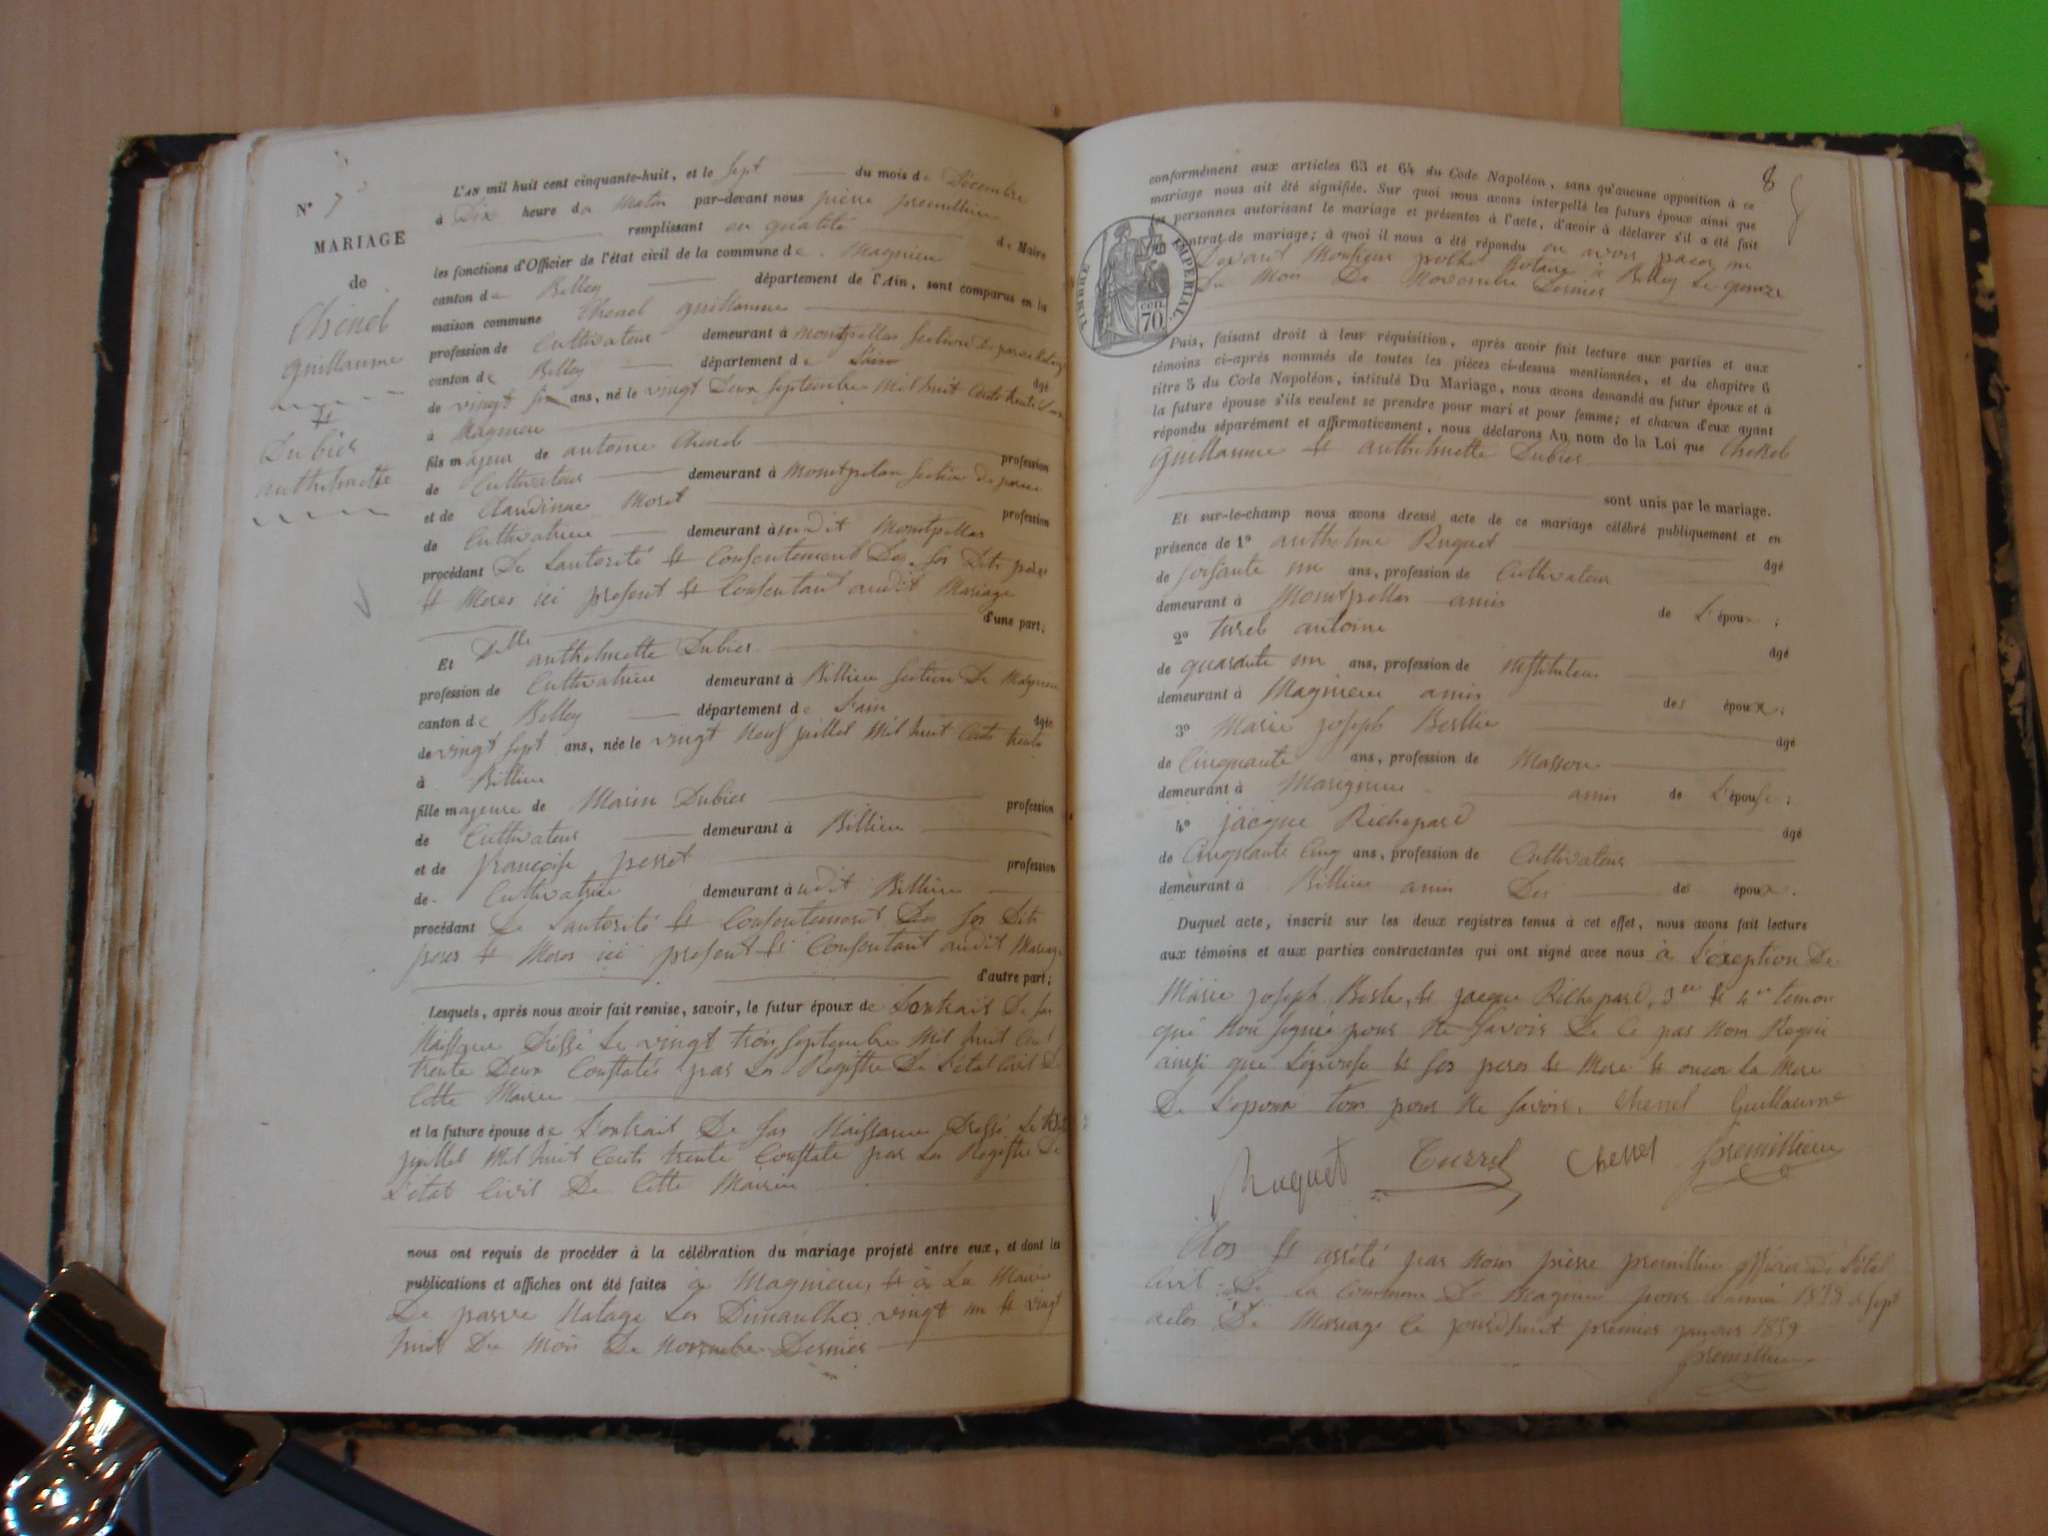 N° 7
MARIAGE
de
Chenel
guillaume
et
Dubier
anthelmette
L'AN mil huit cent cinquante-huit, et le sept du mois de Décembre
à Dix heure du Matin par-devant nous pierre premillieu
remplissant en qualité de Maire
les fonctions d'Officier de l'état civil de la commune de Magnieu
canton de Belley département de l'Ain, sont comparus en la
maison commune Chenel guillaume
profession de Cultivateur demeurant à montpellas section de
canton de Belley département de l'ain âgé
de vingt six ans, né le vingt Deux septembre Mil huit Cents trente Deux
à Magnieu
fils majeur de antoine Chenel profession
de Cultivateur demeurant à montpellas section de
et de Claudinne Moret profession
de Cultivatrice demeurant à audit Montpellas
procédant De Lautorité et Consentement Des ses Dits père
et Meres ici present et Consentant audit Mariage
d'une part;
Et Delle anthelmette Dubier
profession de Cultivatrice demeurant à Billieu section De Magnieu
canton de Belley département de L'ain âgée
de vingt sept ans, née le vingt Neuf juillet Mil huit Cents trente
à Billieu
fille majeure de Marin Dubier profession
de Cultivateur demeurant à Billieu
et de françoise perret profession
de Cultivatrice demeurant à udit Billieu
procédant De Lautorité et Consentement De ses Dits
peres et Meres ici present et Consentant audit Mariage
d'autre part;
Lesquels, après nous avoir fait remise, savoir, le futur époux de Lextrait De sas
Naissance Dressé Le vingt trois septembre Mil huit Cent
trente Deux Constatés par Les Registre De L'état Civil De
Cette Mairie
et la future épouse de Lextrait De sas Naissance Dressé Le
juillet Mil huit Cents trente Constate par Les Registre De
L'état Civil De Cette Mairie
nous ont requis de procéder à la célébration du mariage projeté entre eux, et dont les
publications et affiches ont été faites à Magnieu, et à La Mairie
De parve Natage Les Dimanches vingt un et vingt
huit Du Mois De Novembre Dernier
8
conformément aux articles 63 et 64 du Code Napoléon, sans qu'aucune opposition à ce
mariage nous ait été signifiée. Sur quoi nous avons interpellé les futurs époux ainsi que
les personnes autorisant le mariage et présentes à l'acte, d'avoir à déclarer s'il a été fait
un contrat de mariage; à quoi il nous a été répondu en avoir passé un
Devant Monsieur Notaire à Belley Le quinze
Du Mois De Novembre Dernier
TIMBRE IMPERIAL
70 cen.
Puis, faisant droit à leur réquisition, après avoir fait lecture aux parties et aux
témoins ci-après nommés de toutes les pièces ci-dessus mentionnées, et du chapitre 6
titre 5 du Code Napoléon, intitulé Du Mariage, nous avons demandé au futur époux et à
la future épouse s'ils veulent se prendre pour mari et pour femme; et chacun d'eux ayant
répondu séparément et affirmativement, nous déclarons Au nom de la Loi que Chenel
guillaume et anthelmette Dubier
sont unis par le mariage.
Et sur-le-champ nous avons dressé acte de ce mariage célébré publiquement et en
présence de 1° anthelme Ruguet âgé
de soisante un ans, profession de Cultivateur
demeurant à Montpellas amis de L'époux ;
2° turel antoine âgé
de quarante un ans, profession de instituteur
demeurant à Magnieu amis des époux ;
3° Marie joseph Berlie âgé
de Cinquante ans, profession de Masson
demeurant à Marignieu amis de L'épouse ;
4° jacque Richepard âgé
de Cinquante Cinq ans, profession de Cultivateur
demeurant à Billieu amis Des des époux .
Duquel acte, inscrit sur les deux registres tenus à cet effet, nous avons fait lecture
aux témoins et aux parties contractantes qui ont signé avec nous à L'exeption De
Marie joseph et jacque Richepard, 3me et 4me temoin
que Non signés pour Ne savoir De Ce pas Nom Requi
ainsi que L'épouse et ses peres et Mere et encor La Mere
De L'epoux tous pour Ne savoir. Chenel Guillaume
Ruguet Turrel Chenel premillieu
Clos et arrété par Nous pierre premillieu officier De L'état
Civil De La Commune De Magnieu pour L'année 1858 a sept
actes De Mariage Ce jourdhuit premier janvier 1859
premillieu